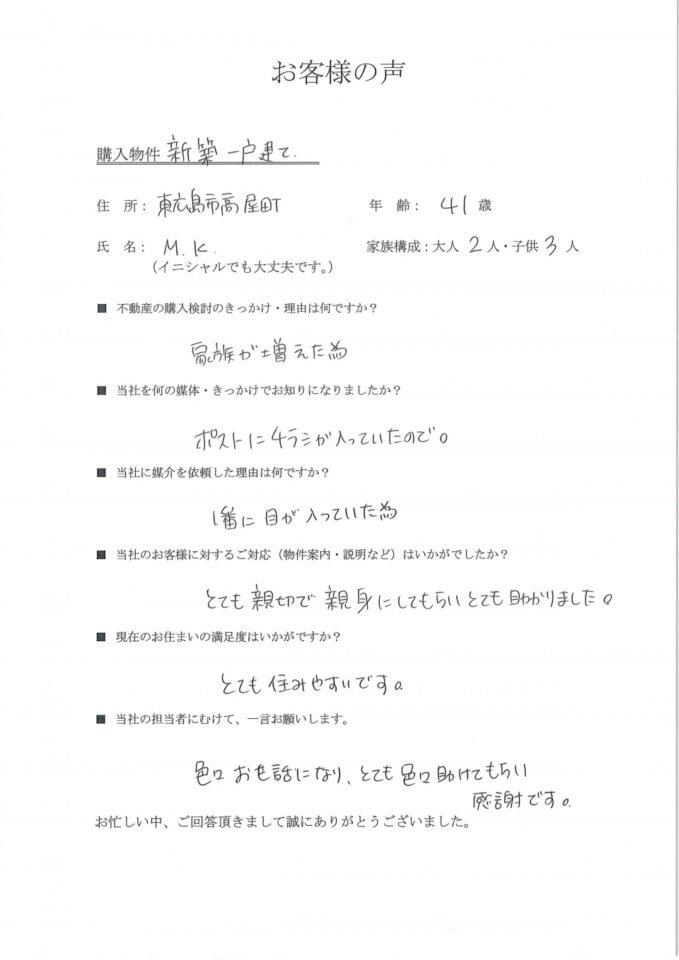 お客様の声
購入物件 新築一戸建て.
住 所： 東広島市高屋町 年 齢： 41 歳
氏 名： M.K. 家族構成：大人 2 人・子供 3 人
（イニシャルでも大丈夫です。）
■ 不動産の購入検討のきっかけ・理由は何ですか？
家族が増えた為
■ 当社を何の媒体・きっかけでお知りになりましたか？
ポストにチラシが入っていたので。
■ 当社に媒介を依頼した理由は何ですか？
1番に目が入っていた為
■ 当社のお客様に対するご対応（物件案内・説明など）はいかがでしたか？
とても親切で親身にしてもらいとても助かりました。
■ 現在のお住まいの満足度はいかがですか？
とても住みやすいです。
■ 当社の担当者にむけて、一言お願いします。
色々お世話になり、とても色々助けてもらい
感謝です。
お忙しい中、ご回答頂きまして誠にありがとうございました。